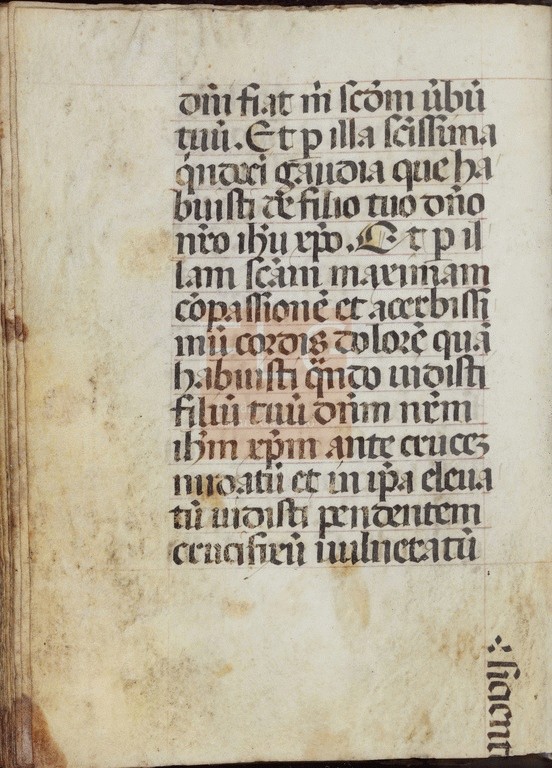 dn̄i fiat m̄ scd̄m ūbū
tuū. Et p illa sctīssima
qͥndeci gaudia que ha
buisti de filio tuo dn̄o
nr̄o ihū xp̄o. Et p il
lam scām maximam
cōpassionē et acerbissi
mū cordis dolorē quā
habuisti qn̄do uidisti
filiū tuū dn̄m nr̄m
ihm̄ xp̄m ante crucez
nudatū et in ip̄a eleua
tū uidisti pendentem
crucifixū uulneratū